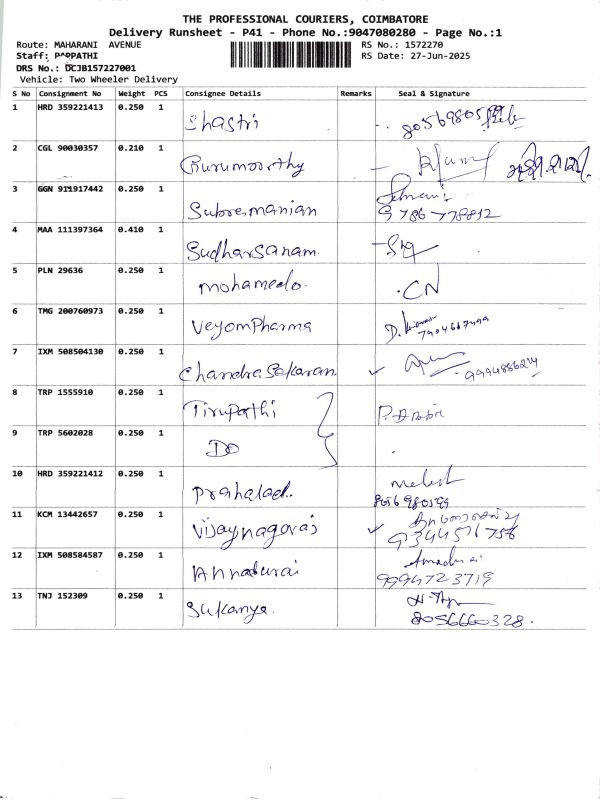 THE PROFESSIONAL COURIERS, COIMBATORE
Delivery Runsheet - P41 - Phone No.:9047080280 - Page No.:1
Route: MAHARANI AVENUE RS No.: 1572270
Staff: PAPPATHI RS Date: 27-Jun-2025
DRS No.: DCJB157227001
Vehicle: Two Wheeler Delivery
S No Consignment No Weight PCS Consignee Details Remarks Seal & Signature
1 HRD 359221413 0.250 1 Shastri
2 CGL 90030357 0.210 1 Gurumoorthy
3 GGN 911917442 0.250 1 Subremanian 9786778812
4 MAA 111397364 0.410 1 Sudharsanam
5 PLN 29636 0.250 1 mohamedo. CN
6 TMG 200760973 0.250 1 VeyomPharma
7 IXM 508504130 0.250 1 Chandrasekaran ✓
8 TRP 1555910 0.250 1 Tirupathi
9 TRP 5602028 0.250 1 DO
10 HRD 359221412 0.250 1 Prahalad.
11 KCM 13442657 0.250 1 Vijaynagoraj ✓
12 IXM 508584587 0.250 1 Annadurai 9994723719
13 TNJ 152309 0.250 1 Sukanya. 8056660328.